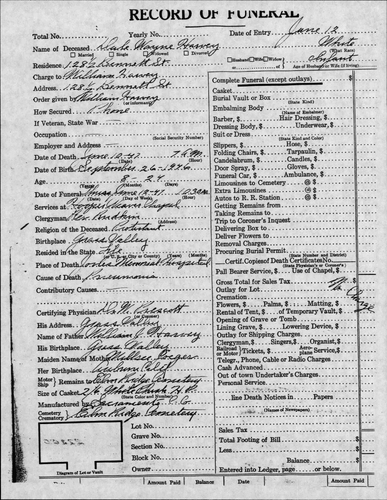 RECORD OF FUNERAL
Total No. Yearly No. Date of Entry June 12
Name of Deceased Wayne Harvey White
Married Single Widowed Divorced Husband Wife Widow of Infant
Residence 128 Bennett St. Age of Husband or Wife (if living)
Charge to William Harvey
Address 128 Bennett St.
Order given by William Harvey
How Secured Phone
If Veteran, State War
Occupation (Social Security Number)
Employer and Address
Date of Death June 10 7 A.M.
Date of Birth September
Age 8 - 24
Date of Funeral June 10:30 am
Services at Chapel
Clergyman Rev.
Religion of the Deceased Protestant
Birthplace Grass Valley
Resided in the State Life
Place of Death Memorial Hospital
Cause of Death Pneumonia
Contributory Causes
Certifying Physician
His Address Grass Valley
Name of Father William Harvey
His Birthplace Grass Valley
Maiden Name of Mother
Her Birthplace Auburn Calif
Motor Ship Remains to Elm Ridge Cemetery
Size of Casket (State Color and Number)
Manufactured by Sacramento
Cemetery Crematory Elm Ridge Cemetery
Lot No.
Grave No.
Section No.
Block No.
Owner
Diagram of Lot or Vault
Amount Paid
Complete Funeral (except outlays) $
Casket
Burial Vault or Box
(State Kind)
Embalming Body
(State Kind)
Barber, Hair Dressing,
Dressing Body, Underwear,
Suit or Dress
(State Kind and Color)
Slippers, Hose,
Folding Chairs, Tarpaulin,
Candelabrum, Candles,
Door Spray, Gloves,
Funeral Car, Ambulance,
Limousines to Cemetery @
Extra Limousines @
Autos to R. R. Station @
Getting Remains from
Taking Remains to
Trip to Coroner's Inquest
Delivering Box to
Deliver Flowers to
Removal Charges
Procuring Burial Permit
(State Number and District)
Certif. Copies of Death Certificate No.
Pall Bearer Service, Use of Chapel,
Gross Total for Sales Tax No
Outlay for Lot Charge
Cremation
Flowers, Palms, Matting,
Rental of Tent, of Temporary Vault,
Opening of Grave or Tomb
Lining Grave, Lowering Device,
Outlay for Shipping Charges
Clergyman, Singers, Organist,
Railroad or Motor Tickets, Aeroplane Service,
Telegr., Phone, Cable or Radio Charges
Cash Advanced
Out of town Undertaker's Charges
Personal Service
line Death Notices in Papers
(Names of Newspapers)
Sales Tax
Total Footing of Bill $
Less
Balance
Entered into Ledger, page or below.
Amount Paid Balance Amount Paid Balance